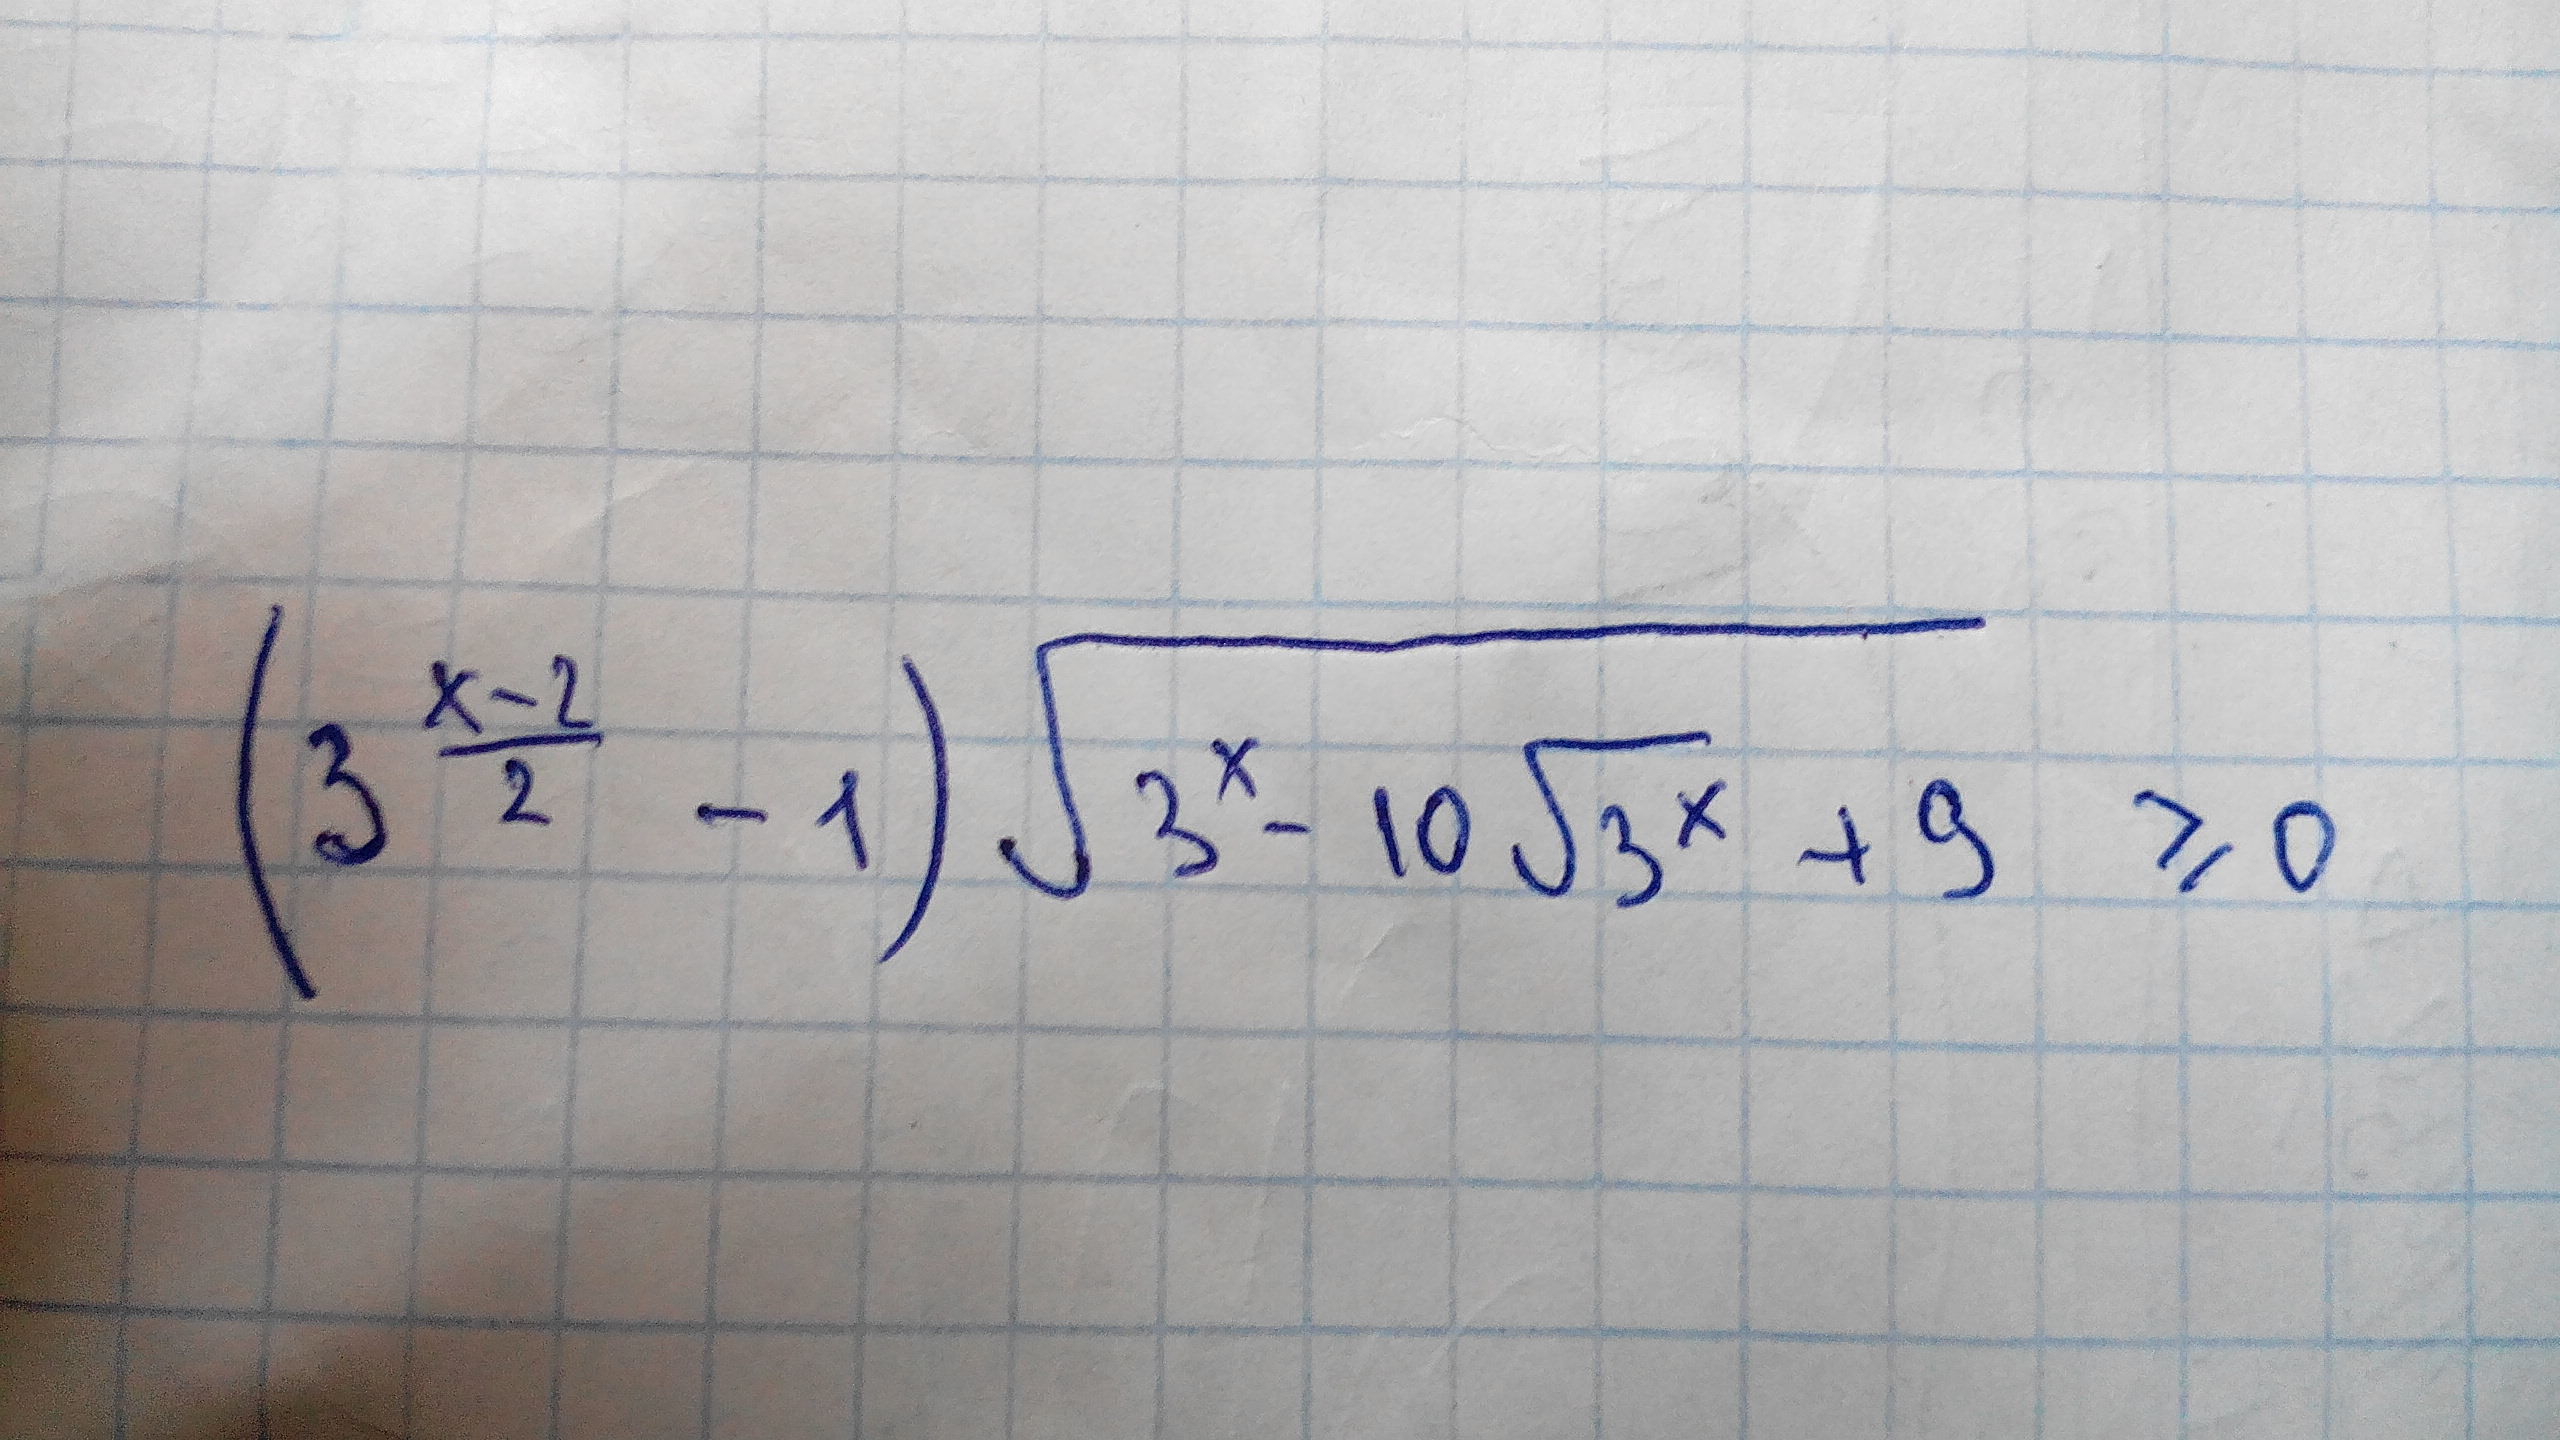 (3^{\frac{x-2}{2}} - 1) \sqrt{3^x - 10\sqrt{3^x} + 9} ⩾ 0